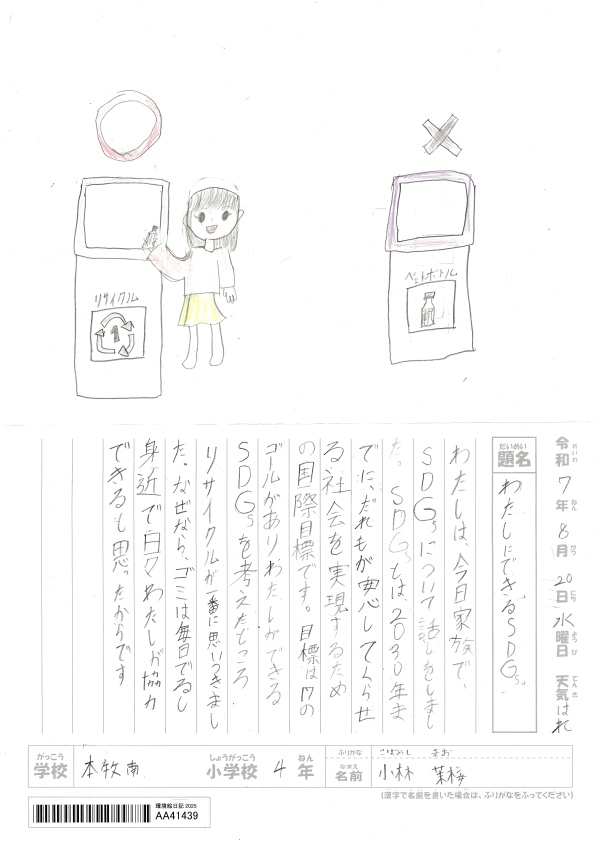 リサイクル
1
ペットボトル
令和7年8月20日水曜日 天気はれ
れいわ ねん がつ にち ようび てんき
だいめい
題名
わたしにできるSDGs
わたしは、今日家族で、
SDGsについて話しをしまし
た。SDGsとは、2030年ま
でに、だれもが安心してくらせ
る社会を実現するため
の国際目標です。目標は17の
ゴールがありわたしができる
SDGsを考えたところ
リサイクルが一番に思いつきまし
た。なぜなら、ゴミは毎日でるし
身近で日々わたしが協力
できると思ったからです
がっこう
学校
本牧南
しょうがっこう
小学校
4
ねん
年
ふりがな
こばやし まお
なまえ
名前
小林 茉桜
(漢字で名前を書いた場合は、ふりがなをふってください)
環境絵日記2025
AA41439